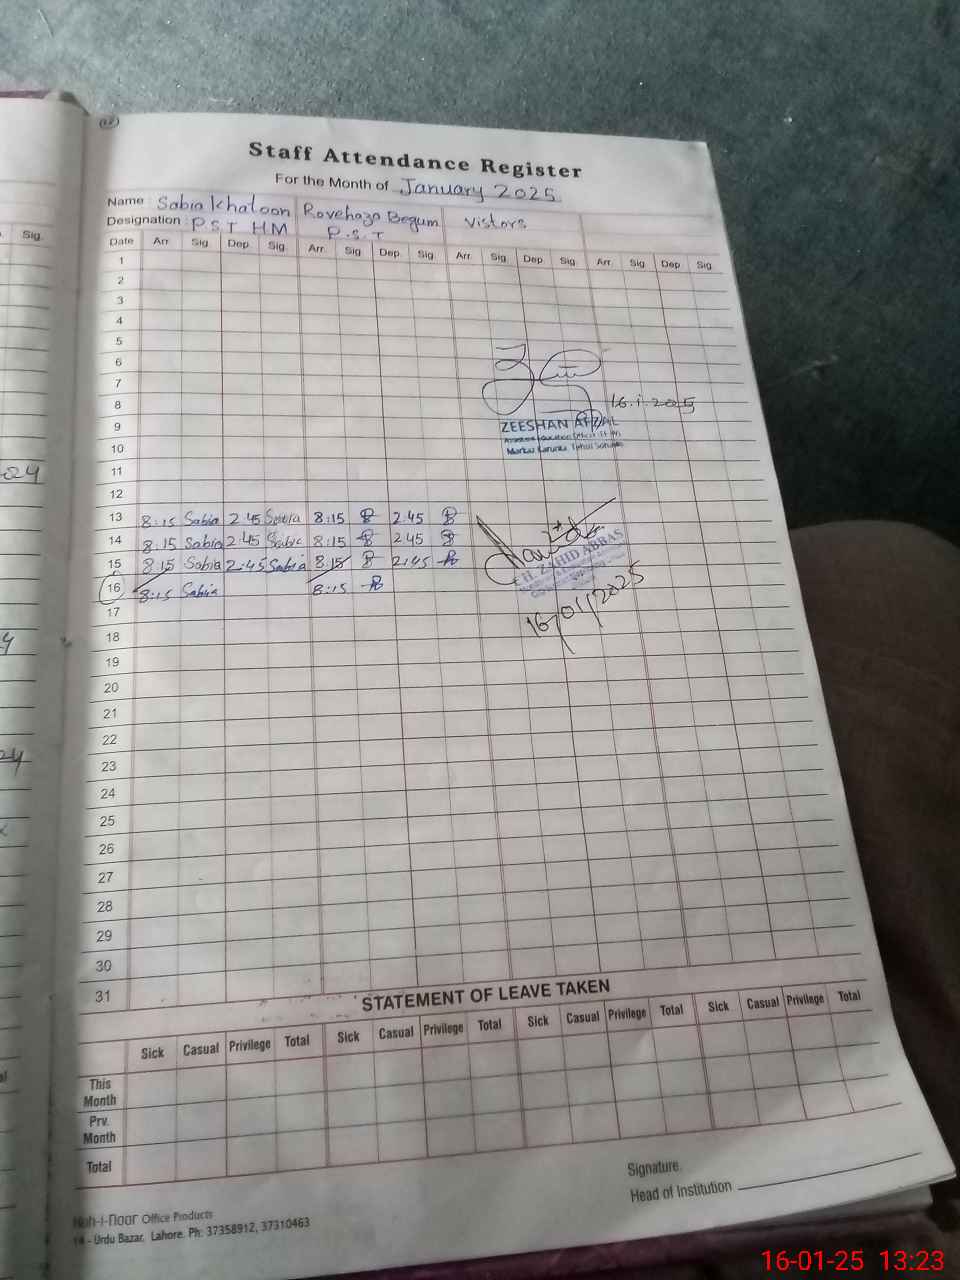 Staff Attendance Register
For the Month of January 2025
Name : Sabia Khatoon Begum Vistors
Designation : P.S.T HM P.S.T
Date Arr. Sig. Dep. Sig. Arr. Sig Dep. Sig. Arr. Sig. Dep. Sig. Arr. Sig. Dep. Sig.
1
2
3
4
5
6
7
8 16.1.2025
9 ZEESHAN AFZAL
10
11
12
13 8:15 Sabia 2.45 Sabia 8:15 2.45
14 8:15 Sabia 2.45 Sabia 8:15 2.45
15 8:15 Sabia 2.45 Sabia 8:15 2.45
ZAHID ABBAS
16 8:15 Sabia 8:15
16/01/2025
17
18
19
20
21
22
23
24
25
26
27
28
29
30
31
STATEMENT OF LEAVE TAKEN
Sick Casual Privilege Total Sick Casual Privilege Total Sick Casual Privilege Total Sick Casual Privilege Total
This
Month
Prv.
Month
Total
Signature.
Head of Institution
Koh-i-noor Office Products
14 - Urdu Bazar, Lahore. Ph: 37358912, 37310463
Sig.
16-01-25 13:23